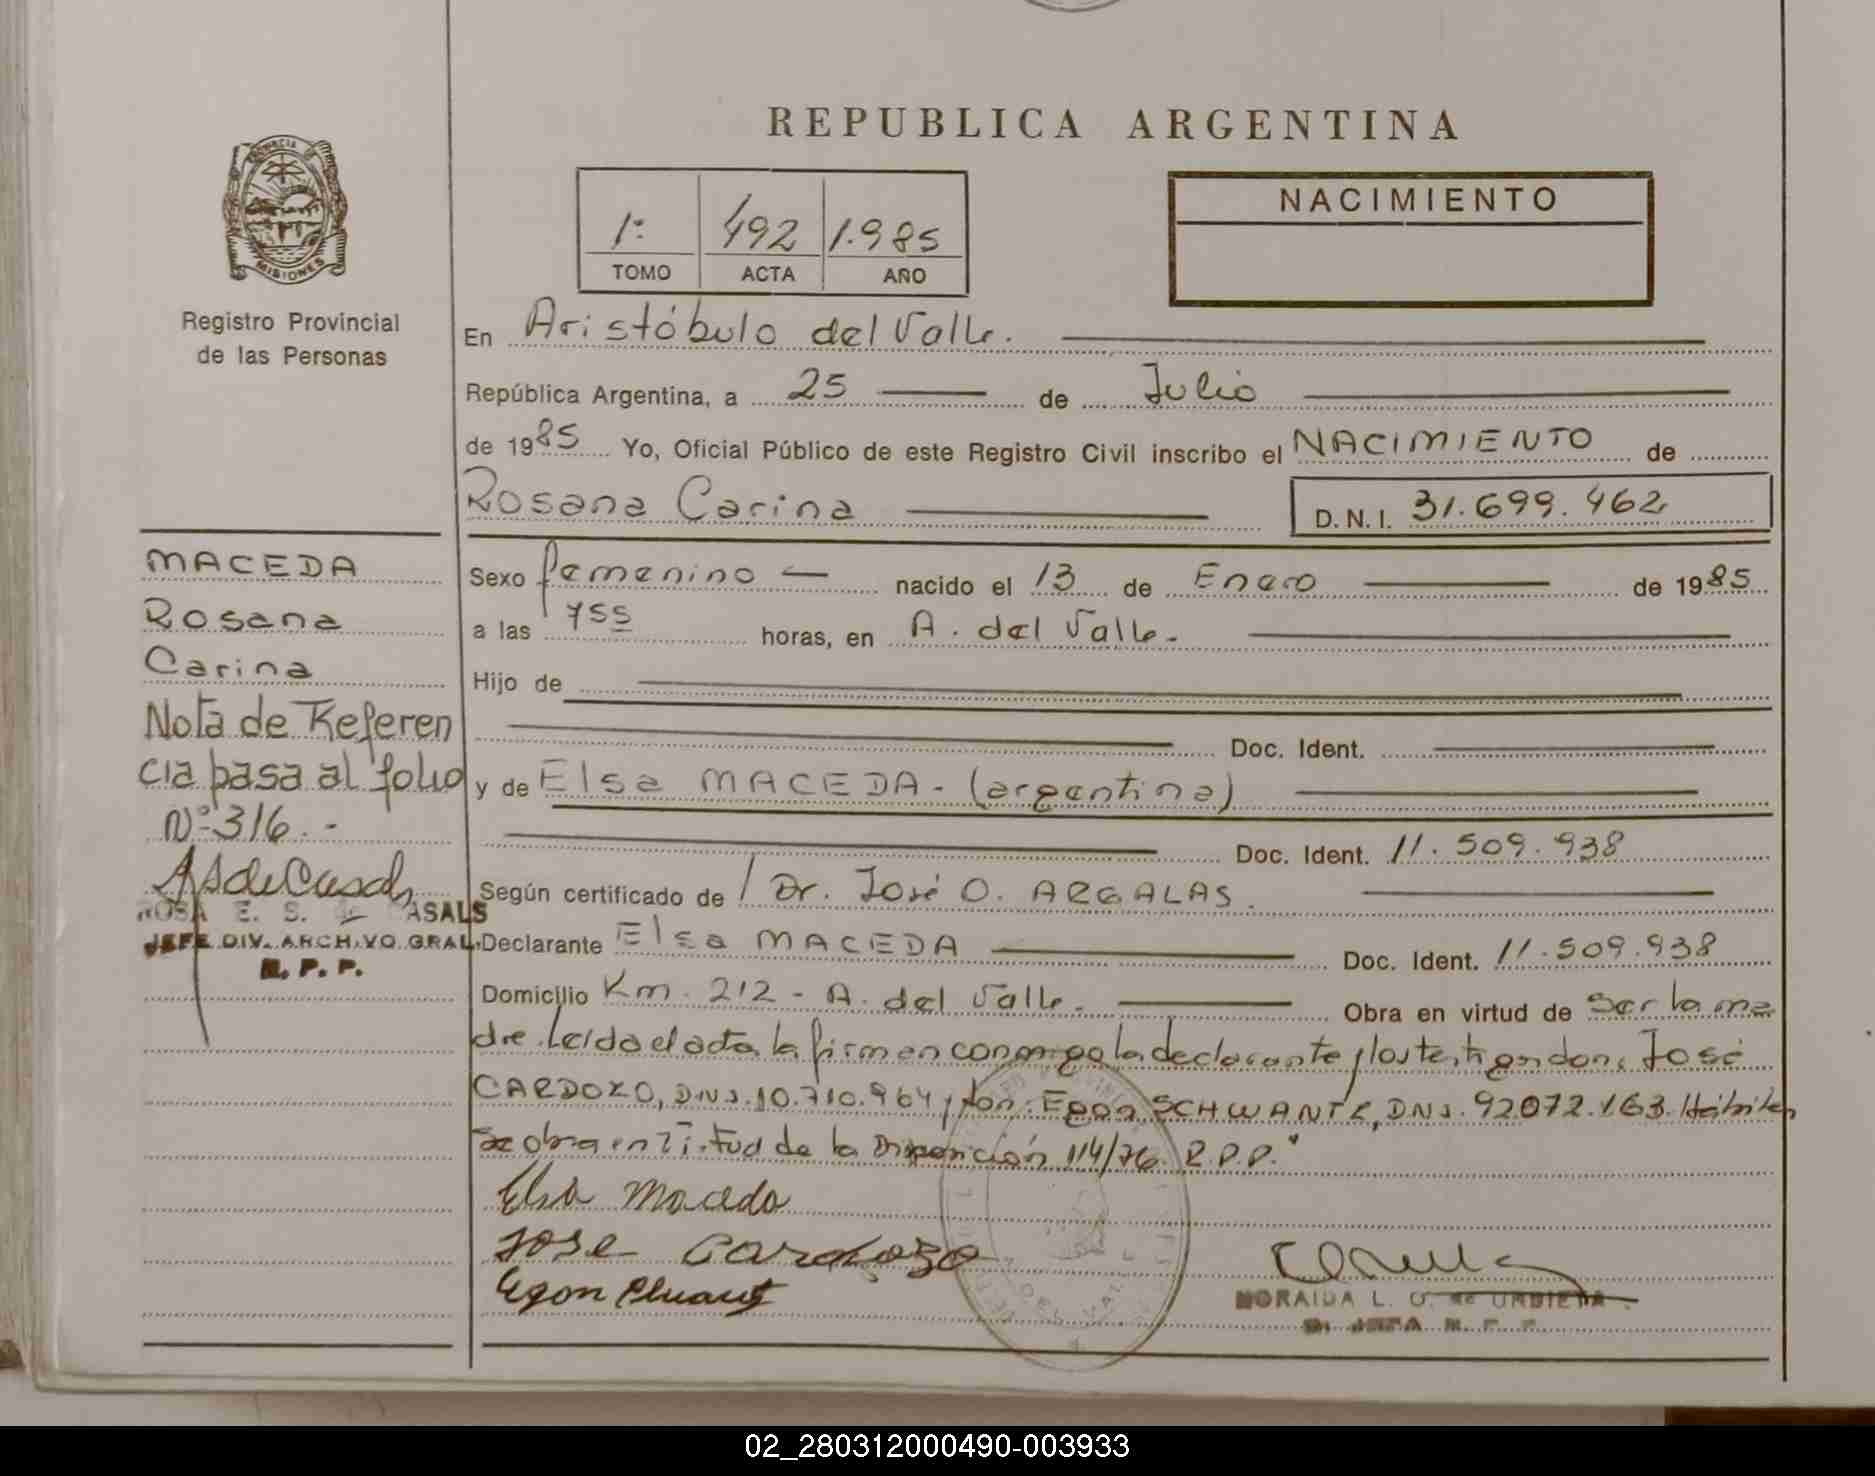 REPUBLICA ARGENTINA
PROVINCIA DE
MISIONES
Registro Provincial
de las Personas
1º 492 1.985
TOMO ACTA AÑO
NACIMIENTO
En Aristóbulo del Valle.
República Argentina, a 25 de Julio
de 1985 Yo, Oficial Público de este Registro Civil inscribo el NACIMIENTO de
Rosana Carina D.N.I. 31.699.462
MACEDA
Rosana
Carina
Nota de Referen
cia pasa al folio
Nº 316.-
ROSA E. S. de CASALS
JEFE DIV. ARCHIVO GRAL.
R. P. P.
Sexo femenino nacido el 13 de Enero de 1985
a las 755 horas, en A. del Valle.
Hijo de
Doc. Ident.
y de Elsa MACEDA - (argentina)
Doc. Ident. 11.509.938
Según certificado de Dr. José O. ARGALAS.
Declarante Elsa MACEDA Doc. Ident. 11.509.938
Domicilio Km. 212 - A. del Valle. Obra en virtud de ser la ma
dre. Leída el acta la firman conmigo la declarante y los testigos don: José
CARDOZO, DNI. 10.710.964 y don: Egon SCHWANTZ, DNI. 92072.163. Hábiles
Se obra en virtud de la Disposición 114/76. R.P.P."
Elsa Maceda
Jose Cardozo
Egon
NORAIDA L. O. de URBIETA
JEFA R. P. P.
02_280312000490-003933